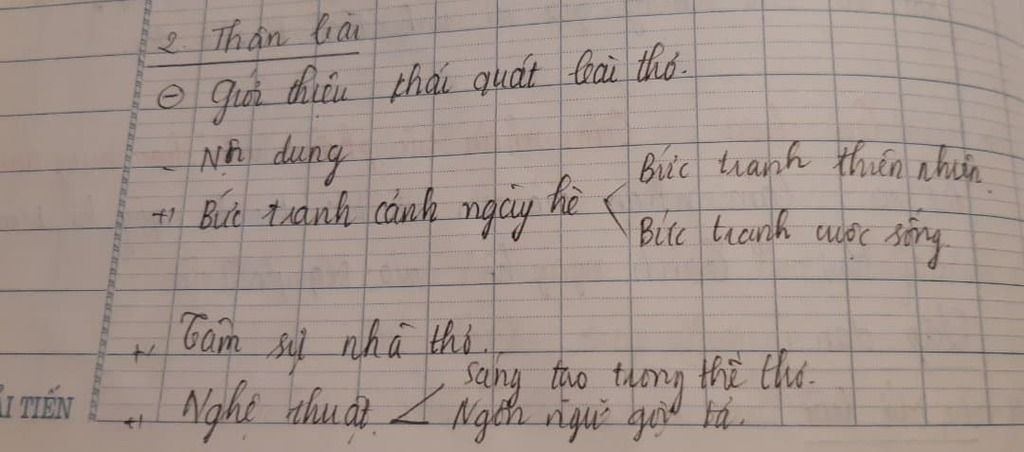 2. Thân bài
⊖ giới thiệu khái quát bài thơ.
- Nội dung
+, Bức tranh cảnh ngày hè < Bức tranh thiên nhiên.
Bức tranh cuộc sống
+, Tâm sự nhà thơ.
+, Nghệ thuật < sáng tạo trong thể thơ.
Ngôn ngữ gợi tả.
ẢI TIẾN